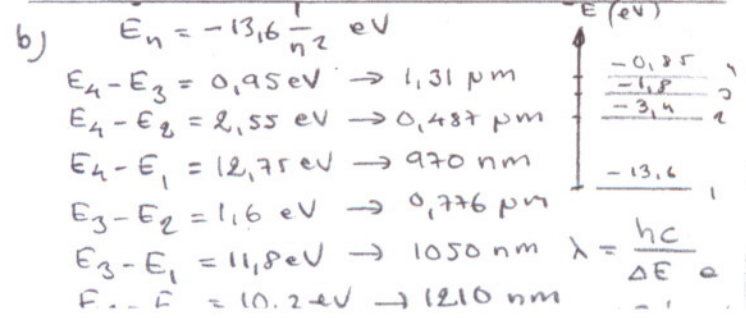 b) E_n = -13,6 1/n² eV
E (eV)
E₄-E₃ = 0,95 eV → 1,31 μm
E₄-E₂ = 2,55 eV → 0,487 μm
E₄-E₁ = 12,75 eV → 970 nm
E₃-E₂ = 1,6 eV → 0,776 μm
E₃-E₁ = 11,8 eV → 1050 nm
= 10.2 eV → 1210 nm
-0,85 4
-1,8 3
-3,4 2
-13,6 1
λ = hc/ΔE e